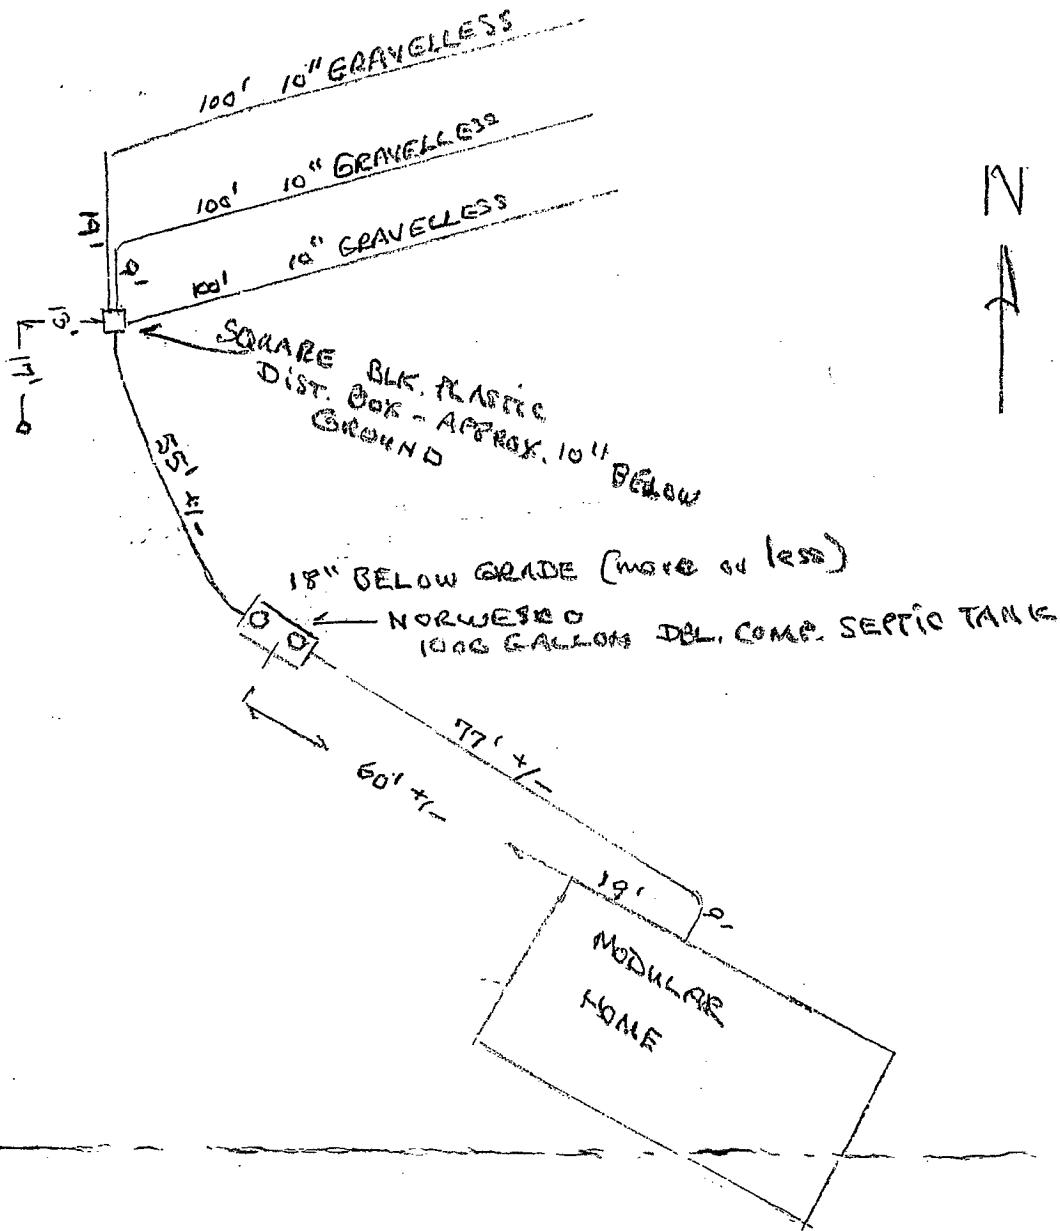 100' 10" GRAVELLESS
100' 10" GRAVELLESS
100' 10" GRAVELLESS
N
19'
9'
17'
SQUARE BLK. PLASTIC
DIST. BOX - APPROX. 10" BELOW
GROUND
55' +/-
18" BELOW GRADE (more or less)
NORWESCO
1000 GALLON DBL. COMP. SEPTIC TANK
77' +/-
60' +/-
19'
9'
MODULAR
HOME